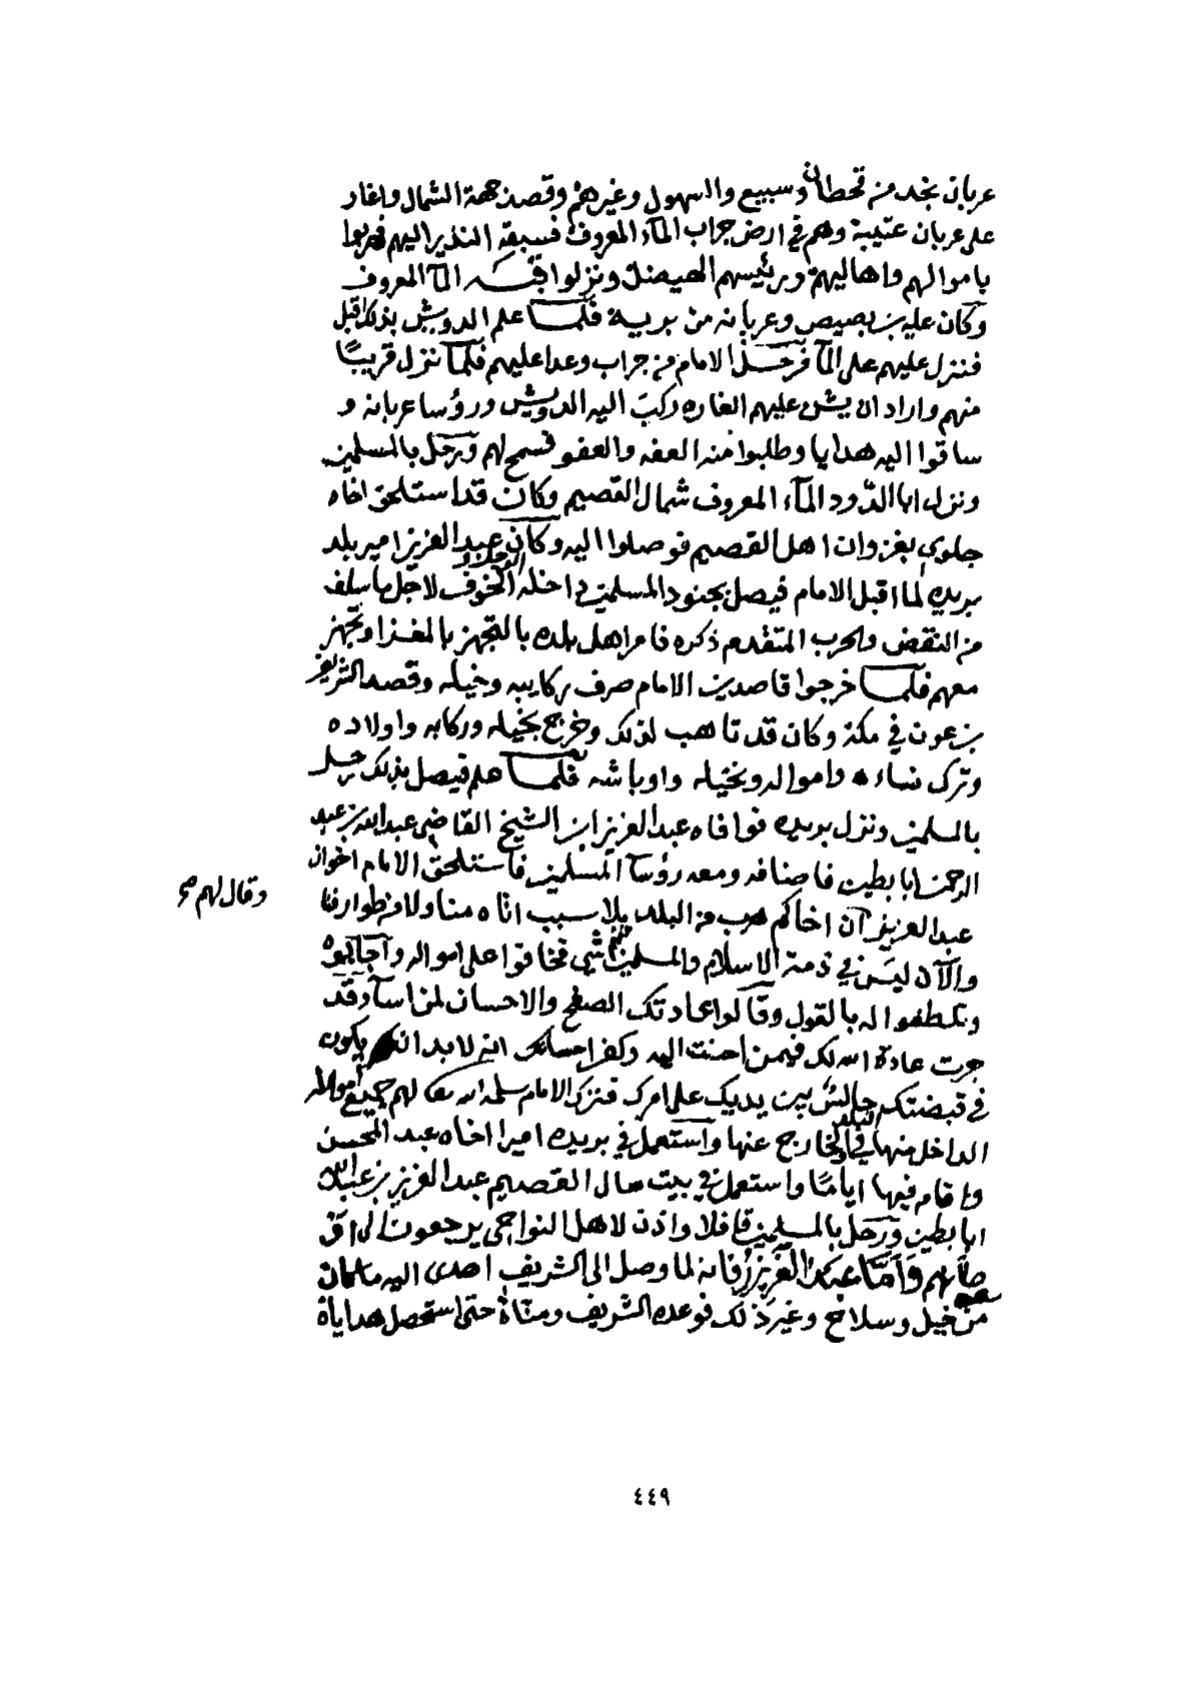 عربان نجد من قحطان وسبيع والسهول وغيرهم وقصد جهة الشمال واغار
على عربان عتيبة وهم في ارض جراب الماء المعروف فسبقه النذير اليهم فهربوا
باموالهم واهاليهم ورئيسهم الهيضل ونزلوا الماء المعروف
وكان عليه بن بصيص وعربانه من بريه فلما علم الدويش بذلك اقبل
فنزل عليهم على الماء فرحل الامام من جراب وعدا عليهم فلما نزل قريبًا
منهم واراد ان يشن عليهم الغاره ركب اليه الدويش ورؤسا عربانه و
ساقوا اليه هدايا وطلبوا منه العفه والعفو فسمح لهم ورحل بالمسلمين
ونزل ابا الدّود الماء المعروف شمال القصيم وكان قد استلحق اخاه
جلوي بغزوان اهل القصيم فوصلوا اليه وكان عبد العزيز امير بلد
بريده لما اقبل الامام فيصل بجنود المسلمين داخله الخوف لاجل ما سلف
من النقض والحرب المتقدم ذكره فامر اهل بلده بالتجهز بالمغزا وتجهز
معهم فلما خرجوا قاصدين الامام صرف ركايبه وخيله وقصد الشريف
بن عون في مكة وكان قد تاهب لذلك وخرج بخيله وركابه واولاده
وترك نساءه وامواله ونخيله واوباشه فلما علم فيصل بذلك رحل
بالمسلمين ونزل بريده فوافاه عبد العزيز ابن الشيخ القاضي عبد الله بن عبد
الرحمن ابا بطين فاضافه ومعه رؤسآ المسلمين فاستلحق الامام اخوان
وقال لهم صح
عبد العزيز ان اخاكم هرب من البلد بلا سبب اتاه منا ولا من طوارفنا
والآن ليس في ذمة الاسلام والمسلمين شي فخافوا على امواله وآجابوه
وتلطفوا له بالقول وقالوا عادتك الصفح والاحسان لمن اسآ وقد
جرت عادة الله لك فيمن احسنت اليه وكفر احسانك انه لا بد ان يكون
في قبضتك جالس بين يديك على امرك فترك الامام سلمه الله تعالى لهم جميع امواله
الداخل منها في البلد والخارج عنها واستعمل في بريده اميرا اخاه عبد المحسن
واقام فيها ايامًا واستعمل في بيت مال القصيم عبد العزيز بن عبد الله
ابا بطين ورحل بالمسلمين قافلا واذن لاهل النواحي يرجعون الى
وآما عبد العزيز فانه لما وصل الى الشريف اهدى اليه ما كان معه
من خيل وسلاح وغير ذلك فوعده الشريف ومنّاه حتى استحصل هداياه
٤٤٩